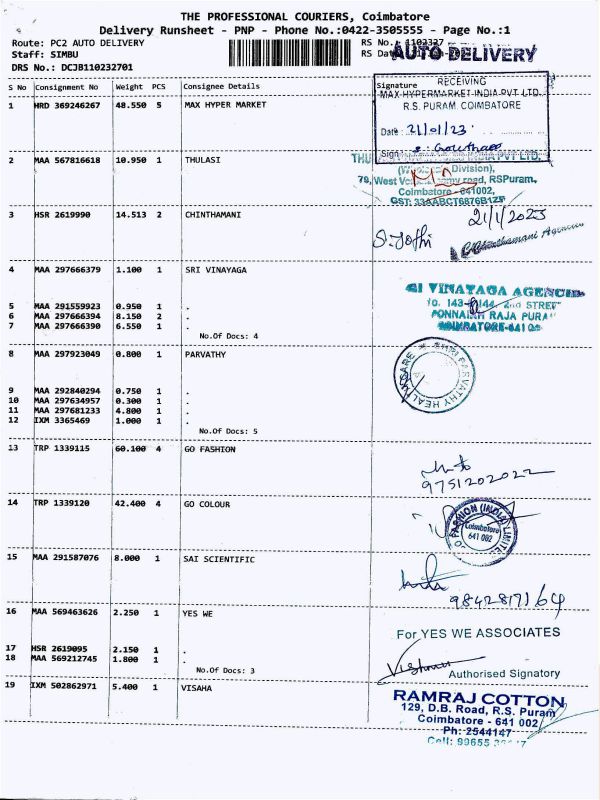 THE PROFESSIONAL COURIERS, Coimbatore
Delivery Runsheet - PNP - Phone No.:0422-3505555 - Page No.:1
Route: PC2 AUTO DELIVERY
Staff: SIMBU
DRS No.: DCJB110232701
RS No.: 1102327
RS Dat
AUTO DELIVERY
S No Consignment No Weight PCS Consignee Details Signature
1 HRD 369246267 48.550 5 MAX HYPER MARKET
RECEIVING
MAX HYPERMARKET INDIA PVT LTD.
R.S. PURAM, COIMBATORE
Date: 21/01/23
Sign:
2 MAA 567816618 10.950 1 THULASI
THU PVT LTD.
Division),
79, West road, RSPuram,
Coimbatore-641002,
GST: 33AABCT6876B1ZF
3 HSR 2619990 14.513 2 CHINTHAMANI
21/1/2023
S. Jothi
Chinthamani Agencies
4 MAA 297666379 1.100 1 SRI VINAYAGA
RI VINAYAGA AGENCIE
No. 143-144, 2nd STREET
PONNAIAH RAJA PURA
COIMBATORE-641 0
5 MAA 291559923 0.950 1 .
6 MAA 297666394 8.150 2 .
7 MAA 297666390 6.550 1 .
No.Of Docs: 4
8 MAA 297923049 0.800 1 PARVATHY
SHRI PARVATHY HEALTHCARE
9 MAA 292840294 0.750 1 .
10 MAA 297634957 0.300 1 .
11 MAA 297681233 4.800 1 .
12 IXM 3365469 1.000 1 .
No.Of Docs: 5
13 TRP 1339115 60.100 4 GO FASHION
9751202022
14 TRP 1339120 42.400 4 GO COLOUR
GO FASHION (INDIA) LIMITED
Coimbatore
641 002
15 MAA 291587076 8.000 1 SAI SCIENTIFIC
9842817164
16 MAA 569463626 2.250 1 YES WE
For YES WE ASSOCIATES
17 HSR 2619095 2.150 1 .
18 MAA 569212745 1.800 1 .
No.Of Docs: 3
Vishnu
Authorised Signatory
19 IXM 502862971 5.400 1 VISAHA
RAMRAJ COTTON
129, D.B. Road, R.S. Puram
Coimbatore - 641 002
Ph: 2544147
Cell: 99655